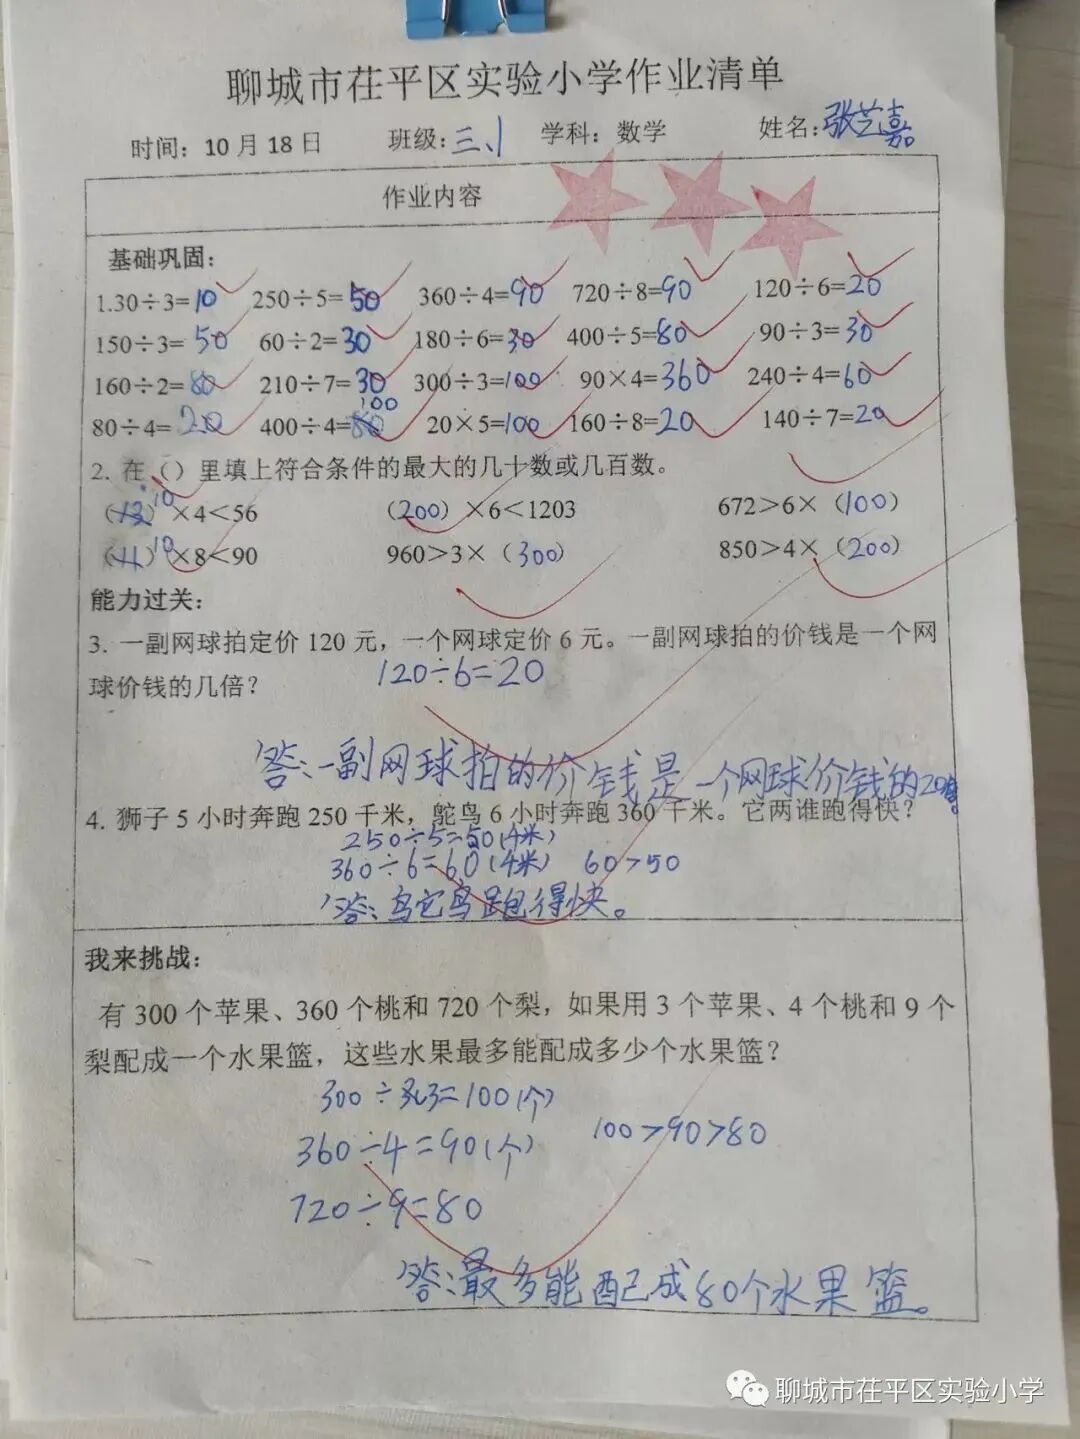 聊城市茌平区实验小学作业清单
时间：10月18日 班级：三、1 学科：数学 姓名：张艺嘉
作业内容
基础巩固：
1.30÷3=10 250÷5=50 360÷4=90 720÷8=90 120÷6=20
150÷3=50 60÷2=30 180÷6=30 400÷5=80 90÷3=30
160÷2=80 210÷7=30 300÷3=100 90×4=360 240÷4=60
80÷4=20 400÷4=100 20×5=100 160÷8=20 140÷7=20
2. 在（）里填上符合条件的最大的几十数或几百数。
（10）×4＜56 （200）×6＜1203 672＞6×（100）
（10）×8＜90 960＞3×（300） 850＞4×（200）
能力过关：
3. 一副网球拍定价 120 元，一个网球定价 6 元。一副网球拍的价钱是一个网
球价钱的几倍？ 120÷6=20
答：一副网球拍的价钱是一个网球价钱的20倍。
4. 狮子 5 小时奔跑 250 千米，鸵鸟 6 小时奔跑 360 千米。它两谁跑得快？
250÷5=50(千米)
360÷6=60(千米) 60>50
答：鸵鸟跑得快。
我来挑战：
有 300 个苹果、360 个桃和 720 个梨，如果用 3 个苹果、4 个桃和 9 个
梨配成一个水果篮，这些水果最多能配成多少个水果篮？
300÷3=100(个)
360÷4=90(个) 100>90>80
720÷9=80
答：最多能配成80个水果篮。
聊城市茌平区实验小学